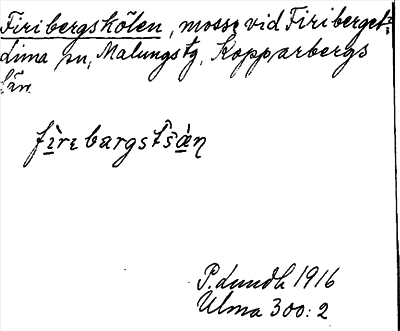 Firibergskölen, mosse vid Firiberget
Lima sn, Malungs tg, Kopparbergs
län
P. Lundh 1916
Ulma 300:2